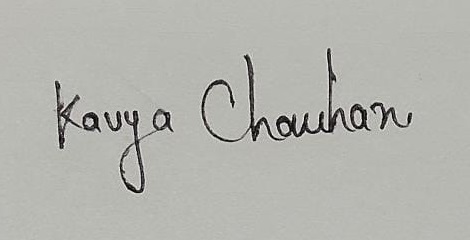 Kavya Chauhan